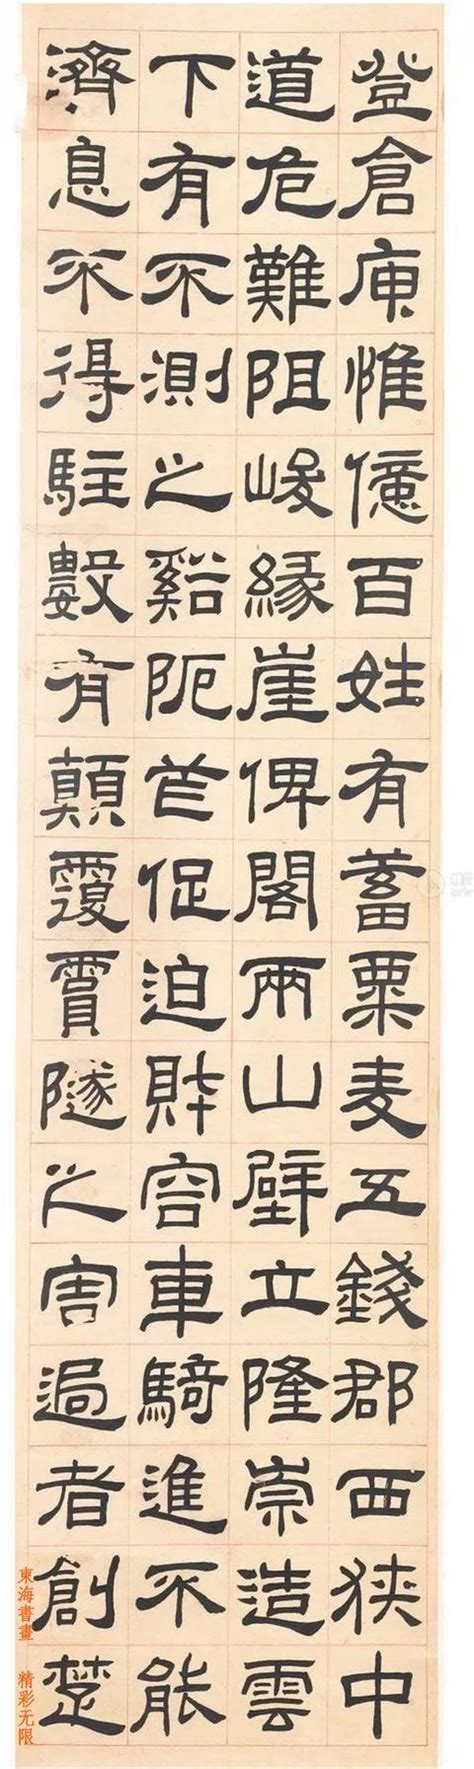 登倉庾惟億百姓有蓄粟麦五錢郡西狹中
道危難阻峻緣崖俾閣兩山壁立隆崇造雲
下有不測之谿阨芷促迫財容車騎進不能
濟息不得駐數有顛覆霣隧之害過者創楚
東海書畫 精彩无限